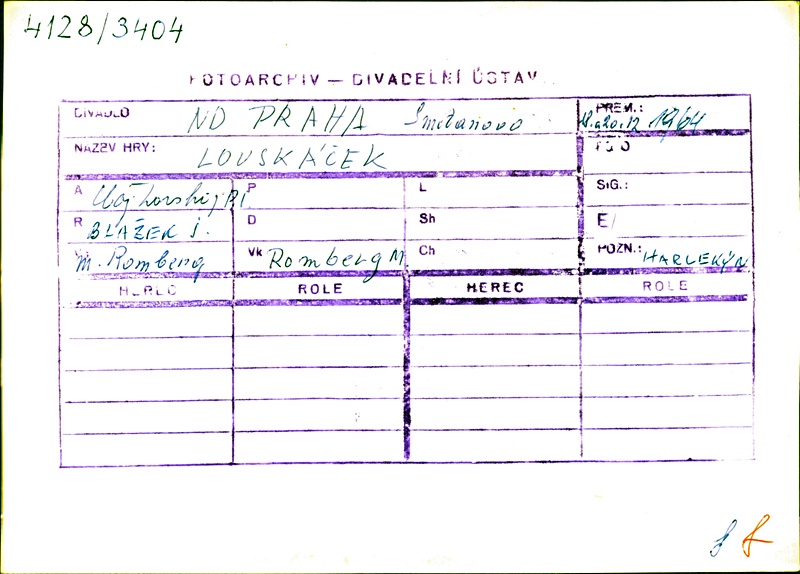 4128/3404
FOTOARCHIV — DIVADELNÍ ÚSTAV
DIVADLO ND PRAHA Smetanovo PREM.: 18. a 20. 12 1964
NÁZEV HRY: LOUSKÁČEK FOTO
A P. I. P L SIG.:
R BLAŽEK J. D Sh E/
M. Romberg Vk Romberg M Ch POZN.: HARLEKÝN
HEREC ROLE HEREC ROLE